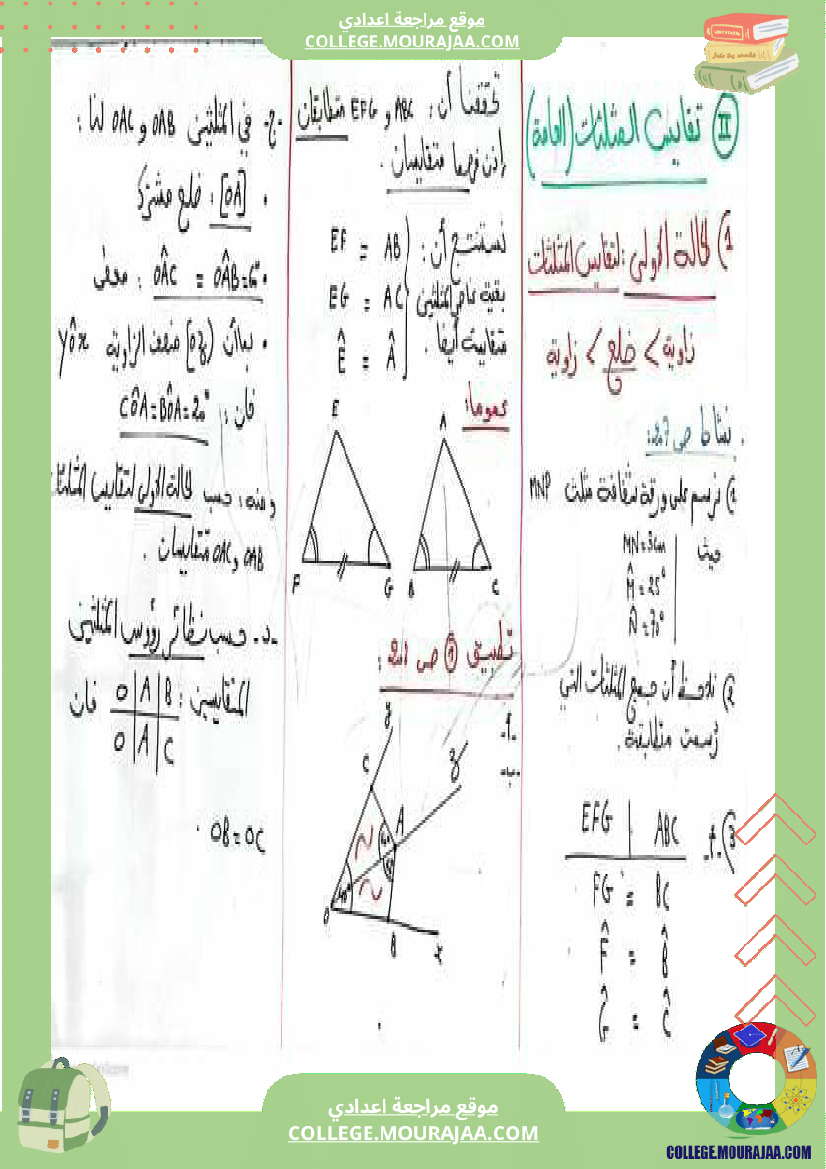 موقع مراجعة اعدادي
COLLEGE.MOURAJAA.COM
II تقايس المثلثات (العامة)
1) الحالة الأولى: لتقايس المثلثات
زاوية > ضلع > زاوية
نشاط ص 207:
1) نرسم على ورقة شفافة مثلث MNP
حيث
MN=3cm
M̂ = 25°
N̂ = 70°
2) نلاحظ أن جميع المثلثات التي
رسمت متطابقة.
3) أ-
EFG | ABC
FG = BC
F̂ = B̂
Ĝ = Ĉ
تحققنا أن: ABC و EFG متطابقان
إذن فهما متقايسان.
نستنتج أن:
بقية عناصر المثلثين
متقايسة أيضا.
EF = AB
EG = AC
Ê = Â
عموما:
E
A
F
G
B
C
تطبيق 1 ص 207:
أ-
ب-
y
C
z
A
60
60
40°
O
B
x
ج- في المثلثين OAB و OAC لنا:
• [OA]: ضلع مشترك
• OÂC = OÂB = 60° : معطى
• بما أن [Oz) منصف الزاوية yÔx
فان: CÔA = BÔA = 20°
ومنه، حسب الحالة الأولى لتقايس المثلثات
OAB و OAC متقايسان.
د- حسب نظائر رؤوس المثلثين
المتقايسين: O | A | B فان
O | A | C
OB = OC
موقع مراجعة اعدادي
COLLEGE.MOURAJAA.COM
COLLEGE.MOURAJAA.COM